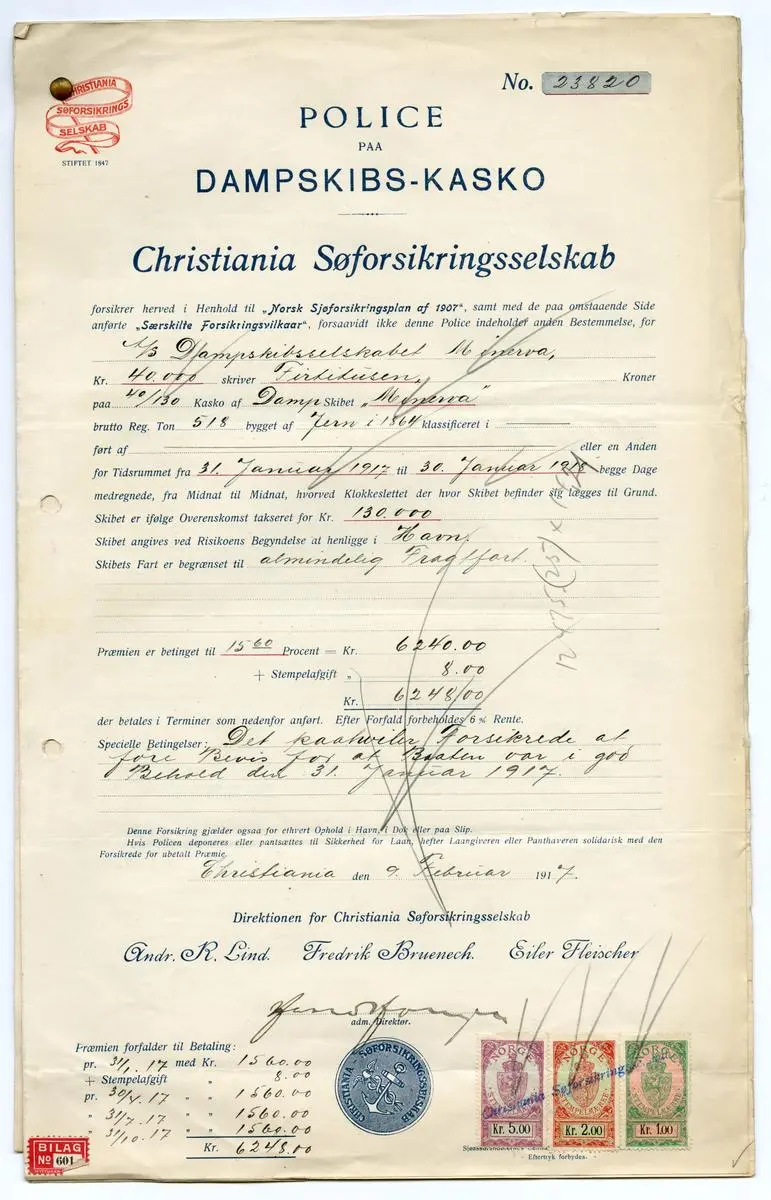 No. 23820
CHRISTIANIA
SØFORSIKRINGS
SELSKAB
STIFTET 1847
POLICE
PAA
DAMPSKIBS-KASKO
Christiania Søforsikringsselskab
forsikrer herved i Henhold til „Norsk Sjøforsikringsplan af 1907“, samt med de paa omstaaende Side
anførte „Særskilte Forsikringsvilkaar“, forsaavidt ikke denne Police indeholder anden Bestemmelse, for
A/S Dampskibsselskabet Minerva,
Kr. 40.000 skriver Firtitusen, Kroner
paa 40/130 Kasko af Damp Skibet „Minerva“
brutto Reg. Ton 518 bygget af Jern i 1864 klassificeret i
ført af eller en Anden
for Tidsrummet fra 31. Januar 1917 til 30. Januar 1918 begge Dage
medregnede, fra Midnat til Midnat, hvorved Klokkeslettet der hvor Skibet befinder sig lægges til Grund.
Skibet er ifølge Overenskomst takseret for Kr. 130.000
Skibet angives ved Risikoens Begyndelse at henligge i Havn.
Skibets Fart er begrænset til almindelig Fragtfart.
Præmien er betinget til 15 60 Procent = Kr. 6240.00
+ Stempelafgift „ 8.00
Kr. 6248.00
der betales i Terminer som nedenfor anført. Efter Forfald forbeholdes 6 % Rente.
Specielle Betingelser: Det paahviler Forsikrede at
føre Bevis for at Baaten var i god
Behold den 31. Januar 1917.
Denne Forsikring gjælder ogsaa for ethvert Ophold i Havn, i Dok eller paa Slip.
Hvis Policen deponeres eller pantsættes til Sikkerhed for Laan, hefter Laangiveren eller Panthaveren solidarisk med den
Forsikrede for ubetalt Præmie.
Christiania den 9. Februar 1917.
Direktionen for Christiania Søforsikringsselskab
Andr. R. Lind. Fredrik Bruenech. Eiler Fleischer
adm. Direktør.
Præmien forfalder til Betaling:
pr. 31/1. 17 med Kr. 1560.00
+ Stempelafgift „ 8.00
pr. 30/4. 17 „ „ 1560.00
„ 31/7. 17 „ „ 1560.00
„ 31/10. 17 „ „ 1560.00
Kr. 6248.00
CHRISTIANIA SØFORSIKRINGSSELSKAB
NORGE NORGE NORGE
STEMPELMERKE STEMPELMERKE STEMPELMERKE
Christiania Søforsikringsselskab
Kr. 5.00 Kr. 2.00 Kr. 1.00
Eftertryk forbydes.
BILAG
No 601